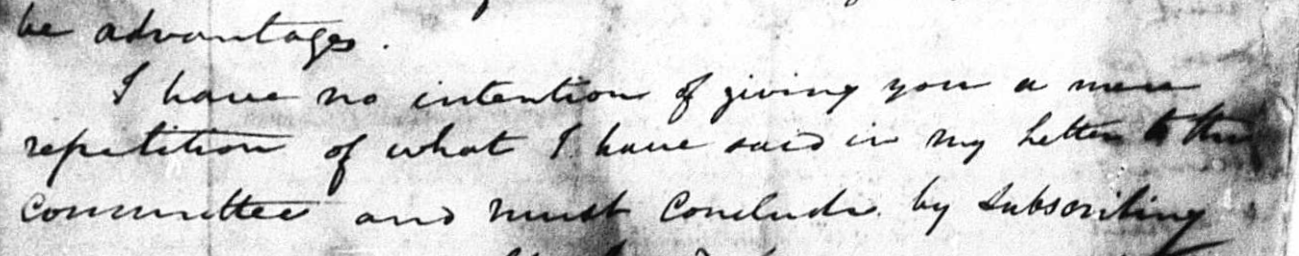 be advantages.
I have no intention of giving you a mere
repetition of what I have said in my Letter to the
committee and must conclude by subscribing